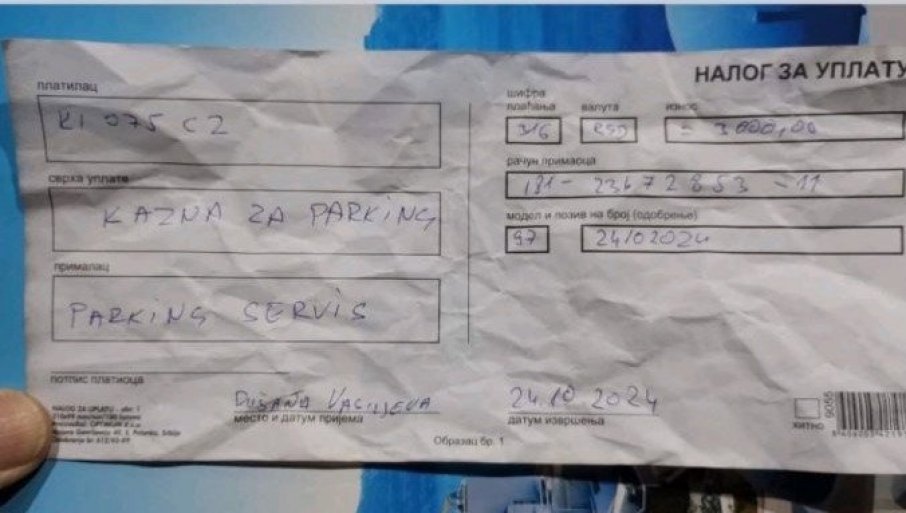 НАЛОГ ЗА УПЛАТУ
платилац
KI 075 CZ
сврха уплате
KAZNA ZA PARKING
прималац
PARKING SERVIS
шифра плаћања
валута
износ
316
RSD
= 3 000,00
рачун примаоца
модел и позив на број (одобрење)
97
24102024
потпис платиоца
DUŠANA VASILJEVA
место и датум пријема
24.10 2024
датум извршења
Образац бр. 1
ХИТНО